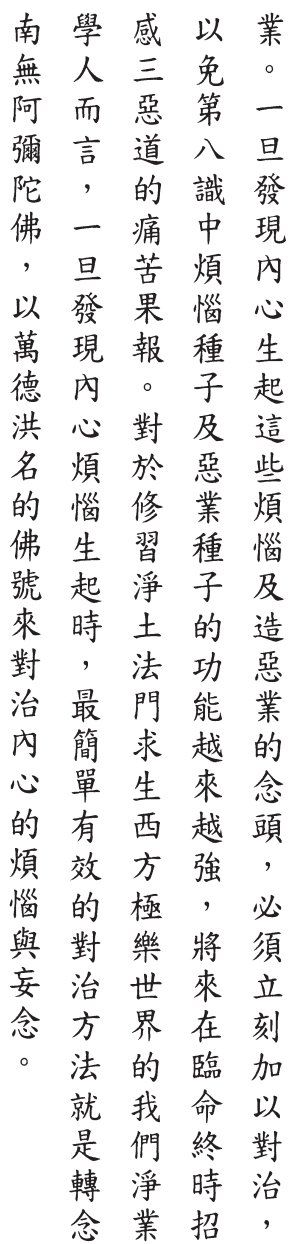 業。一旦發現內心生起這些煩惱及造惡業的念頭，必須立刻加以對治，
以免第八識中煩惱種子及惡業種子的功能越來越強，將來在臨命終時招
感三惡道的痛苦果報。對於修習淨土法門求生西方極樂世界的我們淨業
學人而言，一旦發現內心煩惱生起時，最簡單有效的對治方法就是轉念
南無阿彌陀佛，以萬德洪名的佛號來對治內心的煩惱與妄念。